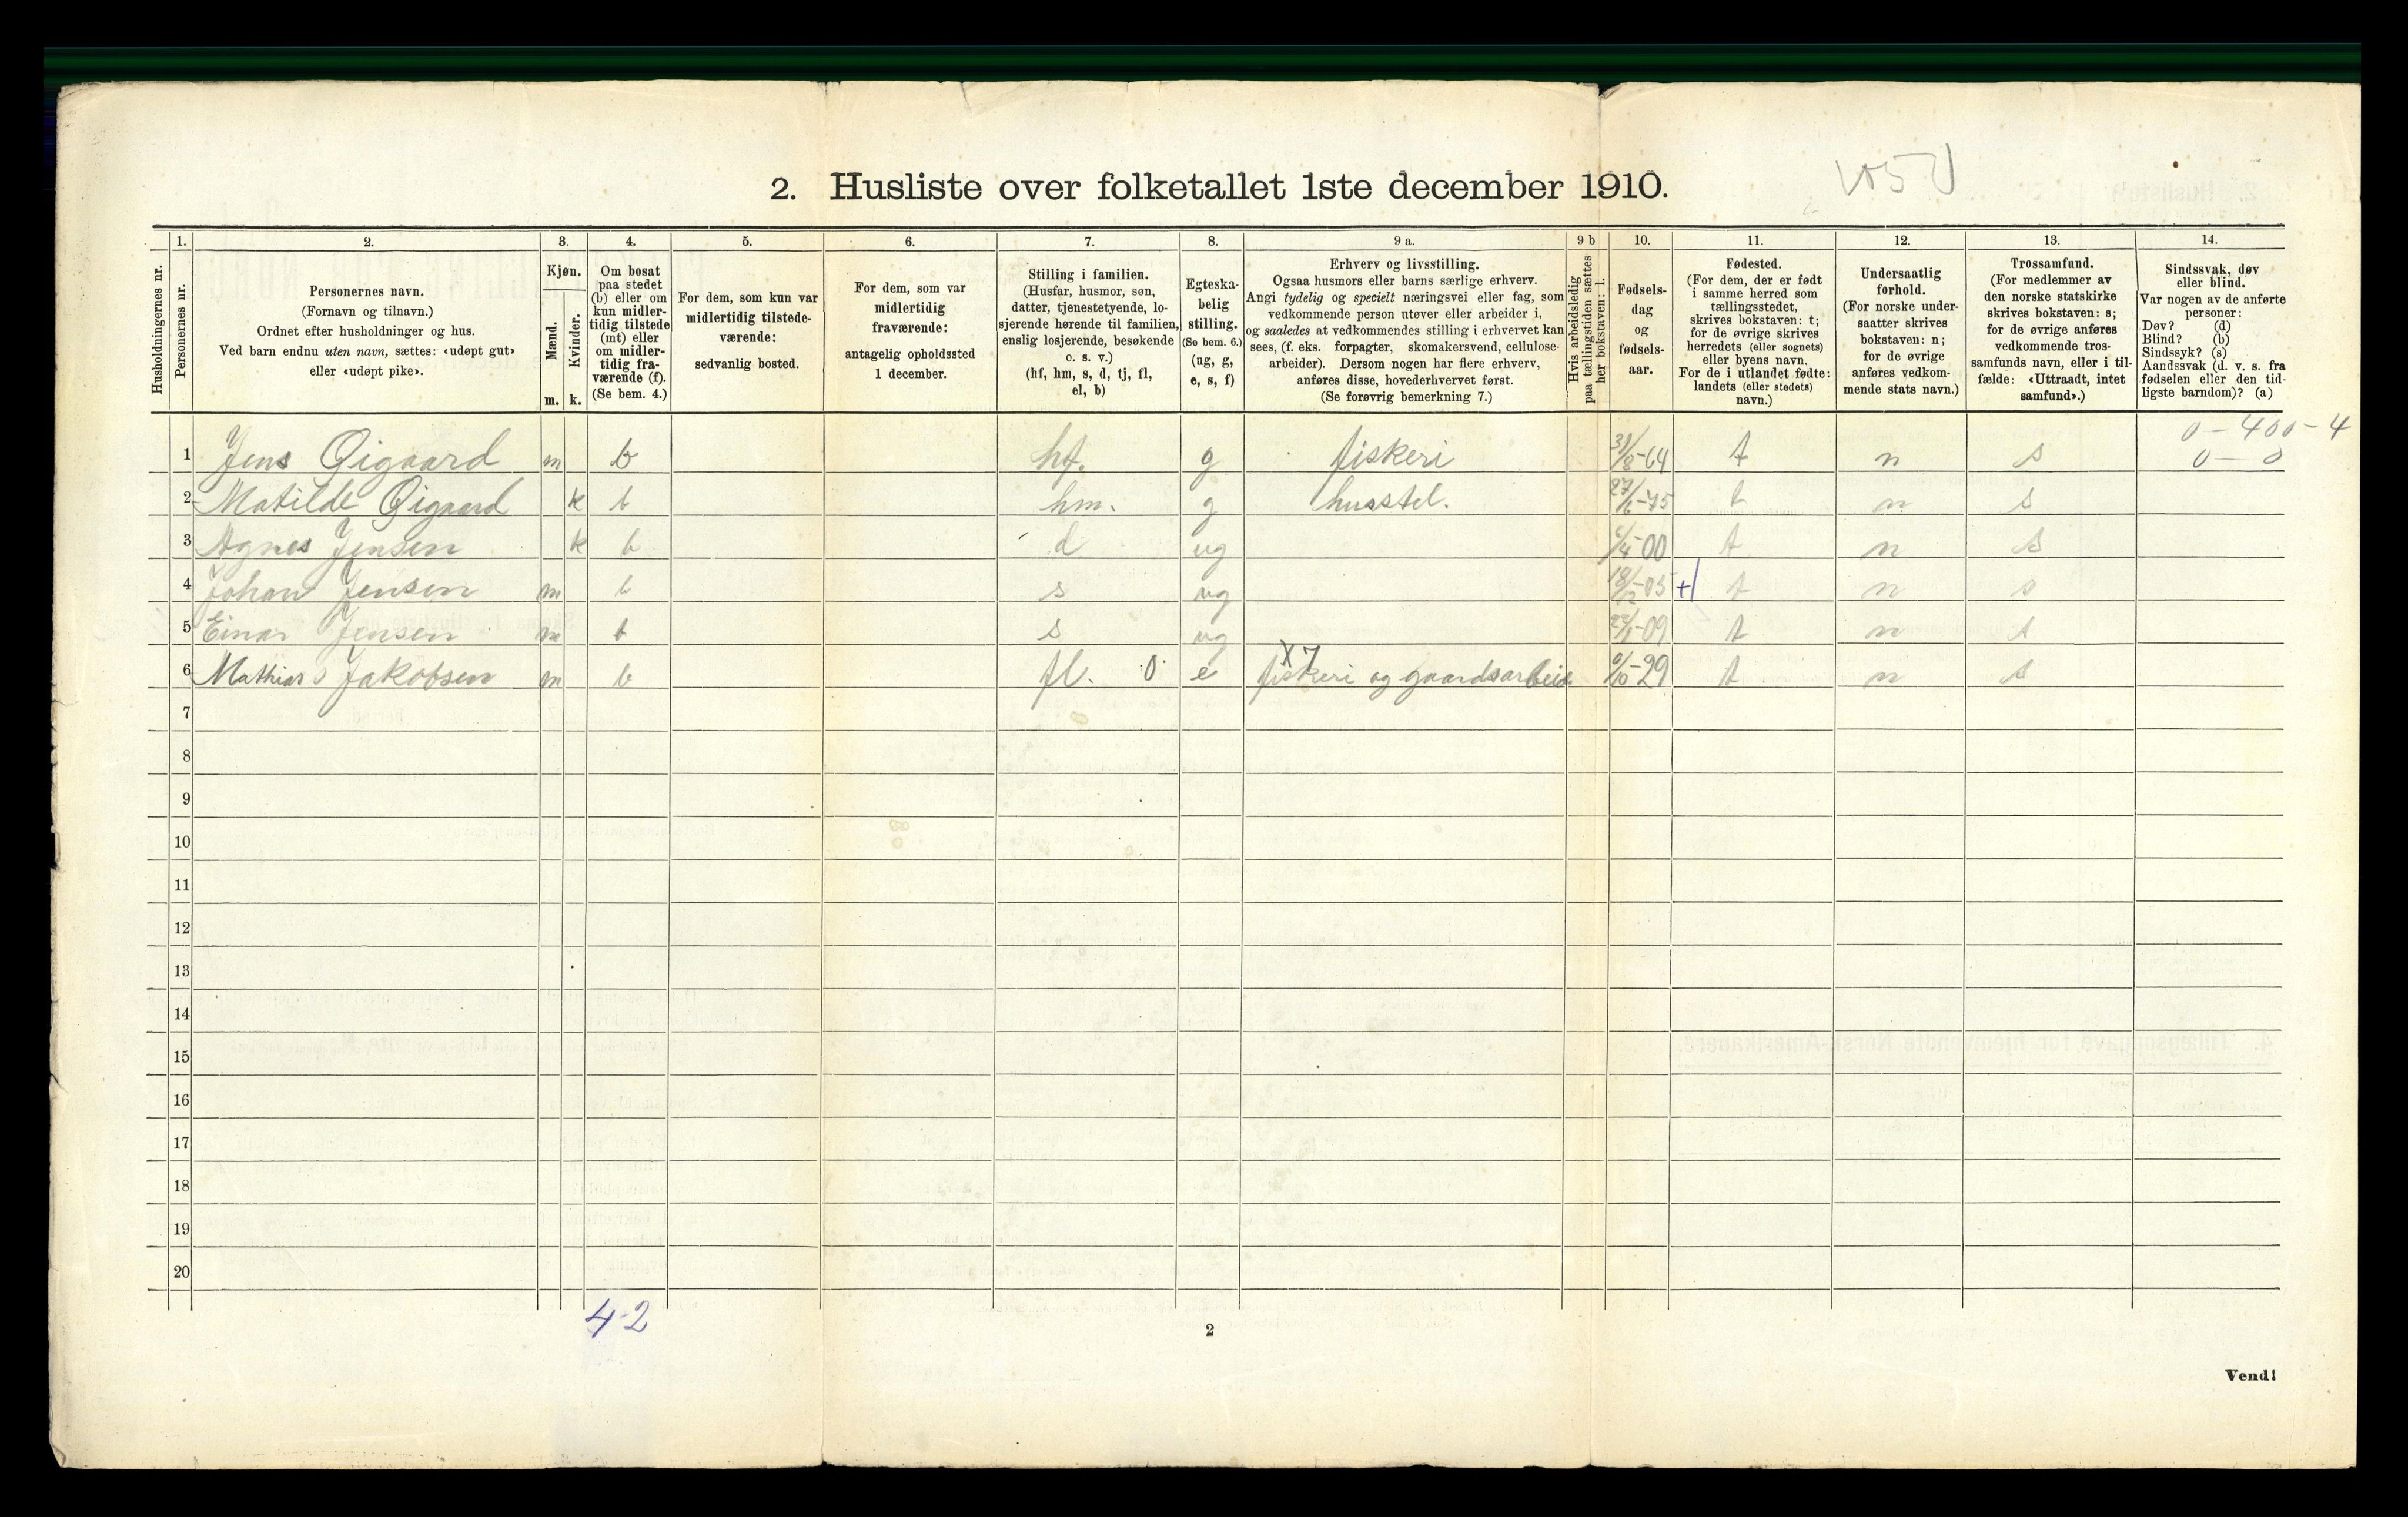 2. Husliste over folketallet 1ste december 1910.
1. 2. 3. 4. 5. 6. 7. 8. 9 a. 9 b 10. 11. 12. 13. 14.
Husholdningernes nr.
Personernes nr.
Personernes navn.
(Fornavn og tilnavn.)
Ordnet efter husholdninger og hus.
Ved barn endnu uten navn, sættes: «udøpt gut»
eller «udøpt pike».
Kjøn.
Mænd.
Kvinder.
m. k.
Om bosat
paa stedet
(b) eller om
kun midler-
tidig tilstede
(mt) eller
om midler-
tidig fra-
værende (f).
(Se bem. 4.)
For dem, som kun var
midlertidig tilstede-
værende:
sedvanlig bosted.
For dem, som var
midlertidig
fraværende:
antagelig opholdssted
1 december.
Stilling i familien.
(Husfar, husmor, søn,
datter, tjenestetyende, lo-
sjerende hørende til familien,
enslig losjerende, besøkende
o. s. v.)
(hf, hm, s, d, tj, fl,
el, b)
Egteska-
belig
stilling.
(Se bem. 6.)
(ug, g,
e, s, f)
Erhverv og livsstilling.
Ogsaa husmors eller barns særlige erhverv.
Angi tydelig og specielt næringsvei eller fag, som
vedkommende person utøver eller arbeider i,
og saaledes at vedkommendes stilling i erhvervet kan
sees, (f. eks. forpagter, skomakersvend, cellulose-
arbeider). Dersom nogen har flere erhverv,
anføres disse, hovederhvervet først.
(Se forøvrig bemerkning 7.)
Hvis arbeidsledig
paa tællingstiden sættes
her bokstaven: l.
Fødsels-
dag
og
fødsels-
aar.
Fødested.
(For dem, der er født
i samme herred som
tællingsstedet,
skrives bokstaven: t;
for de øvrige skrives
herredets (eller sognets)
eller byens navn.
For de i utlandet fødte:
landets (eller stedets)
navn.)
Undersaatlig
forhold.
(For norske under-
saatter skrives
bokstaven: n;
for de øvrige
anføres vedkom-
mende stats navn.)
Trossamfund.
(For medlemmer av
den norske statskirke
skrives bokstaven: s;
for de øvrige anføres
vedkommende tros-
samfunds navn, eller i til-
fælde: «Uttraadt, intet
samfund».)
Sindssvak, døv
eller blind.
Var nogen av de anførte
personer:
Døv? (d)
Blind? (b)
Sindssyk? (s)
Aandssvak (d. v. s. fra
fødselen eller den tid-
ligste barndom)? (a)
0 - 400 - 4
0 - 0
1 Jens Qigaard m b hf. g fiskeri 31/8-64 t n s
2 Matilde Qigaard k b hm. g husstel. 27/6-75 t n s
3 Agnes Jensen k b d ug 6/4-00 t n s
4 Johan Jensen m b s ug 18/12-05 t n s
5 Einar Jensen m b s ug 23/1-09 t n s
X 7
6 Mathias Jakobsen m b fl. 0 e fiskeri og gaardsarbeid /10-29 t n s
7
8
9
10
11
12
13
14
15
16
17
18
19
20
42
2
Vend!